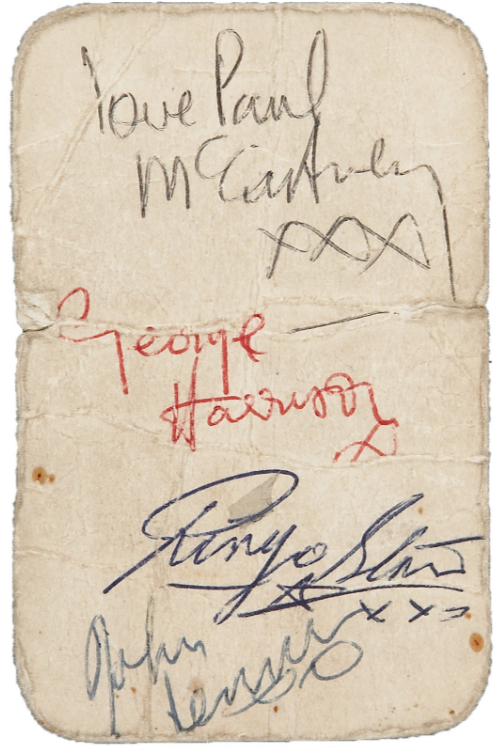 love Paul
McCartney
xxx
George
Harrison
x
Ringo Starr
xxx
John
Lennon